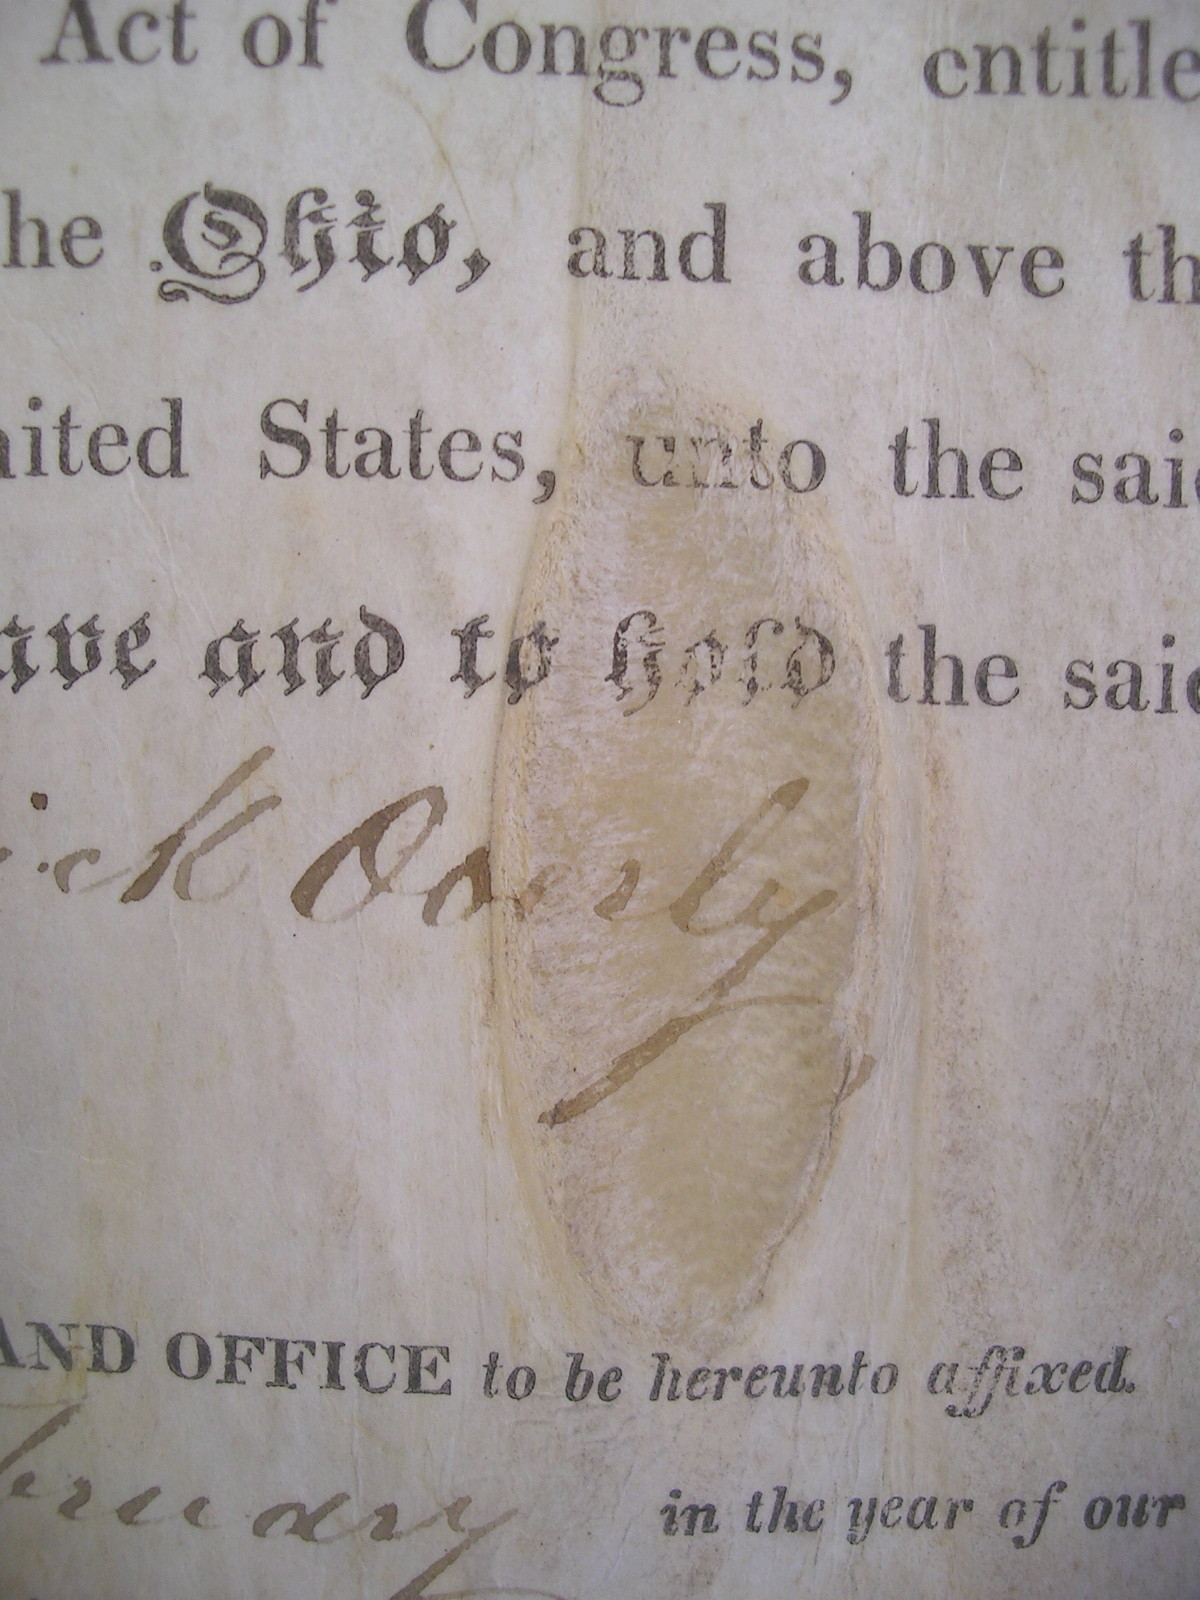 Act of Congress, entitle
he Ohio, and above th
nited States, unto the said
ave and to hold the said
ick Overly
AND OFFICE to be hereunto affixed.
bruary in the year of our